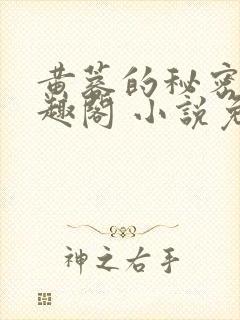 黄蓉的秘密
趣阁 小説免
神之右手